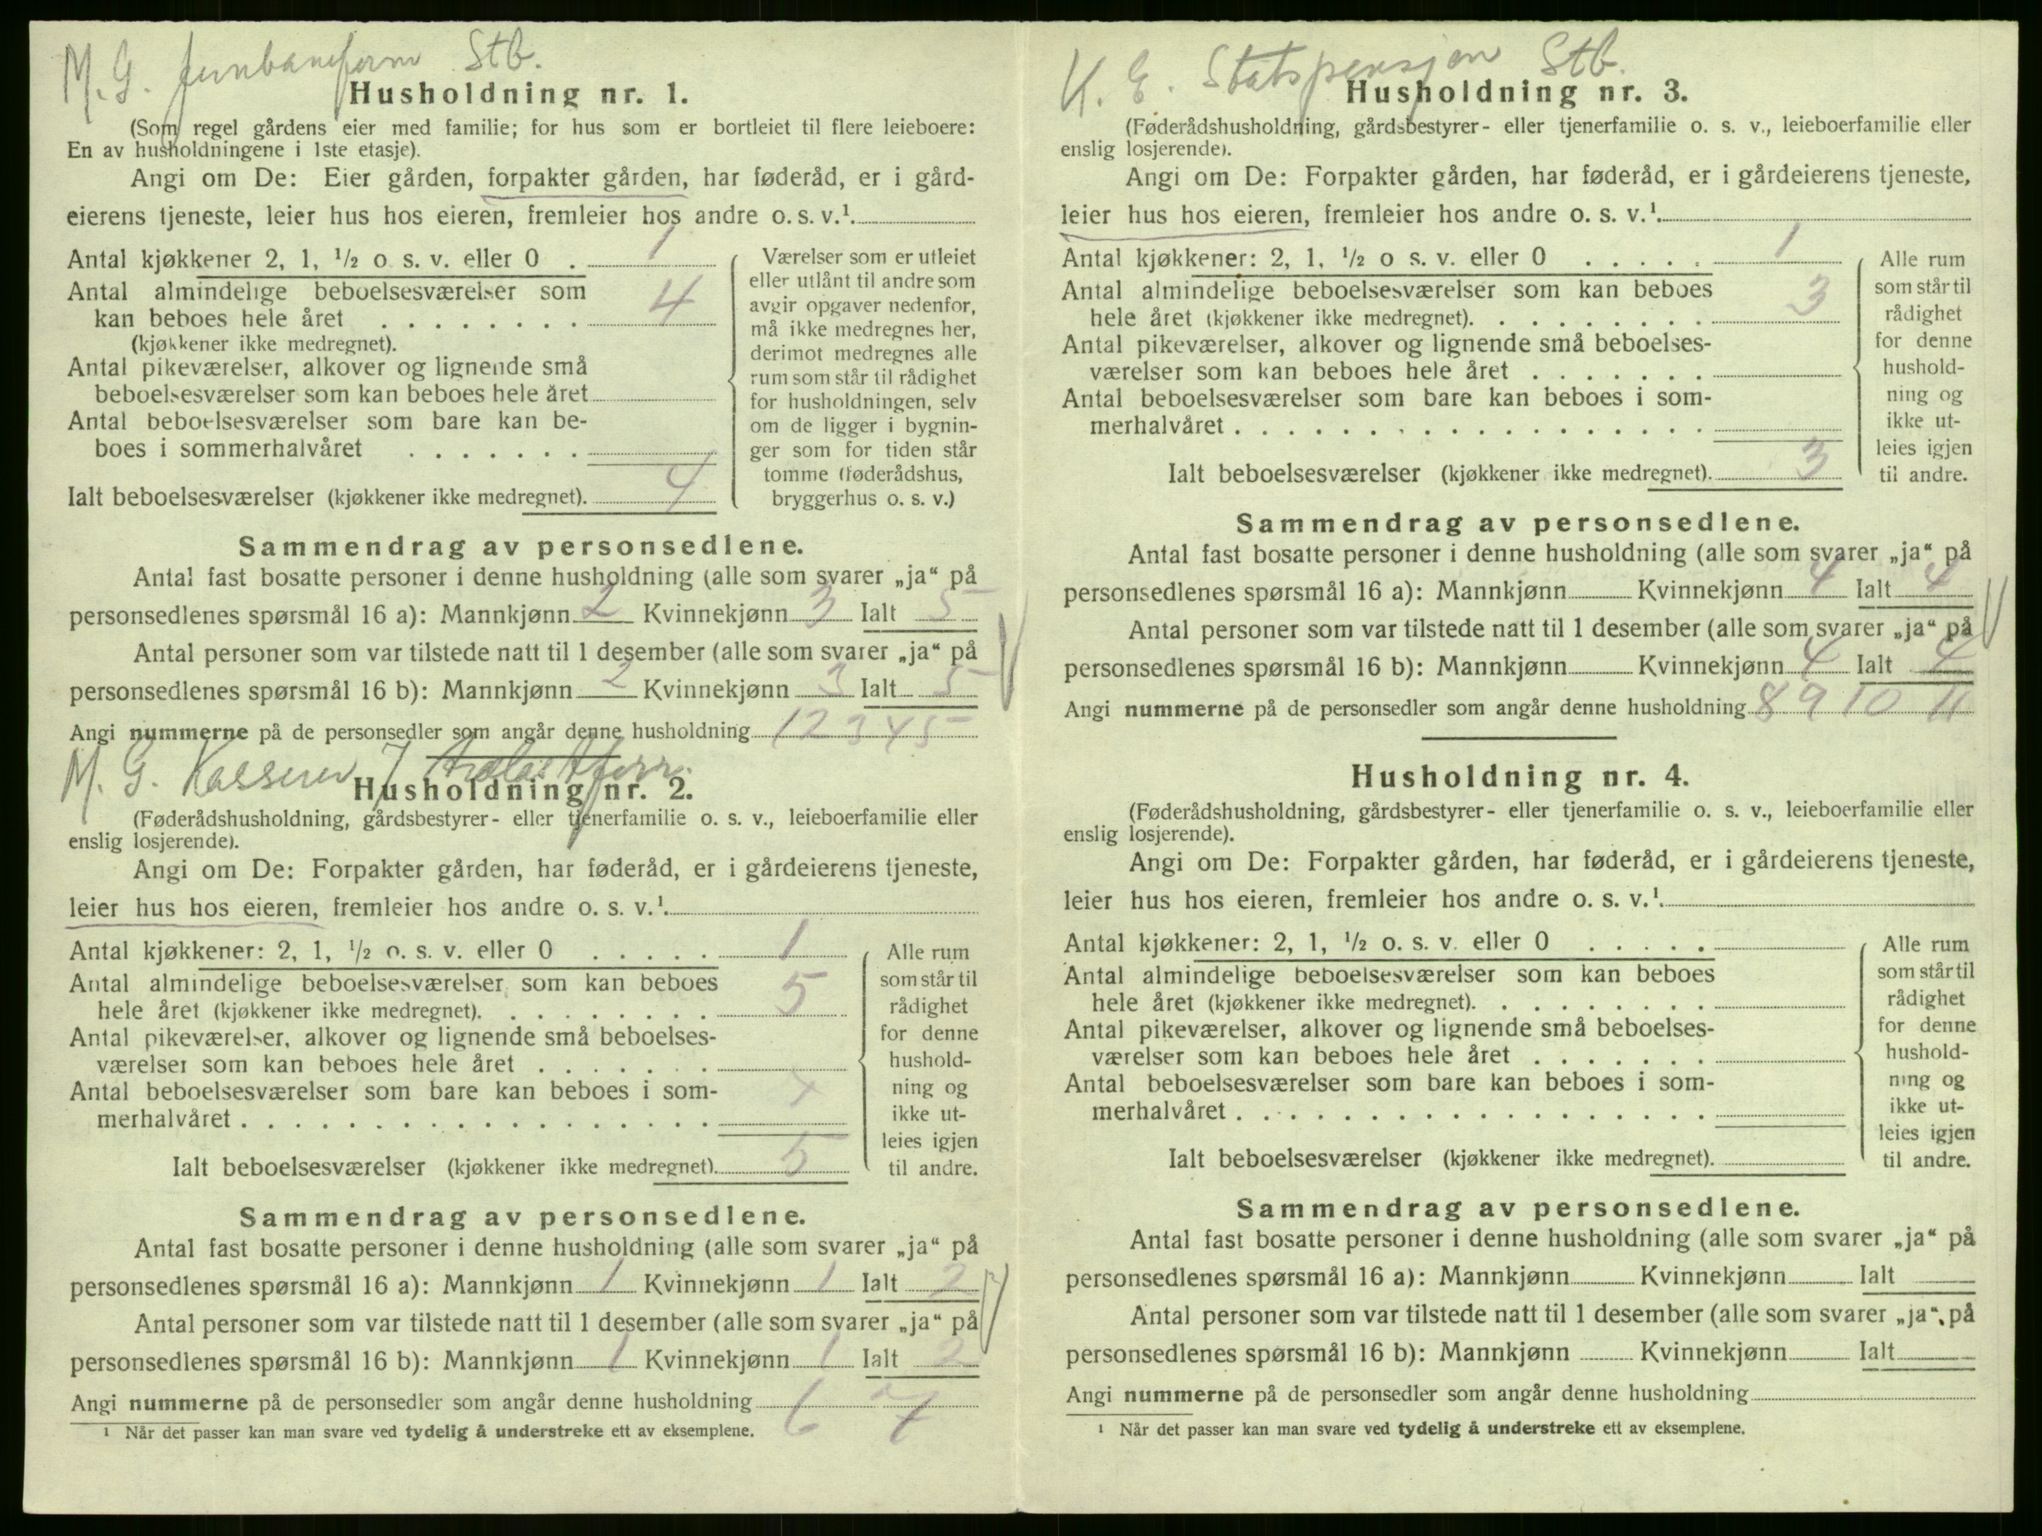 M. G. Jernbaneform Stb.
Husholdning nr. 1.
(Som regel gårdens eier med familie; for hus som er bortleiet til flere leieboere:
En av husholdningene i 1ste etasje).
Angi om De: Eier gården, forpakter gården, har føderåd, er i gård-
eierens tjeneste, leier hus hos eieren, fremleier hos andre o. s. v.¹.
Antal kjøkkener 2, 1, ½ o s. v. eller 0 . 1
Antal almindelige beboelsesværelser som
kan beboes hele året . . . . . . . . 4
(kjøkkener ikke medregnet).
Antal pikeværelser, alkover og lignende små
beboelsesværelser som kan beboes hele året
Antal beboelsesværelser som bare kan be-
boes i sommerhalvåret . . . . . . .
Ialt beboelsesværelser (kjøkkener ikke medregnet). 4
Værelser som er utleiet
eller utlånt til andre som
avgir opgaver nedenfor,
må ikke medregnes her,
derimot medregnes alle
rum som står til rådighet
for husholdningen, selv
om de ligger i bygnin-
ger som for tiden står
tomme (føderådshus,
bryggerhus o. s. v.)
Sammendrag av personsedlene.
Antal fast bosatte personer i denne husholdning (alle som svarer „ja“ på
personsedlenes spørsmål 16 a): Mannkjønn 2 Kvinnekjønn 3 Ialt 5
Antal personer som var tilstede natt til 1 desember (alle som svarer „ja“ på
personsedlenes spørsmål 16 b): Mannkjønn 2 Kvinnekjønn 3 Ialt 5
Angi nummerne på de personsedler som angår denne husholdning 1 2 3 4 5
M. G. Kasserer
Husholdning nr. 2.
(Føderådshusholdning, gårdsbestyrer- eller tjenerfamilie o. s. v., leieboerfamilie eller
enslig losjerende).
Angi om De: Forpakter gården, har føderåd, er i gårdeierens tjeneste,
leier hus hos eieren, fremleier hos andre o. s. v.¹.
Antal kjøkkener: 2, 1, ½ o. s. v. eller 0 . . . . . 1
Antal almindelige beboelsesværelser som kan beboes
hele året (kjøkkener ikke medregnet). . . . . . . . . 5
Antal pikeværelser, alkover og lignende små beboelses-
værelser som kan beboes hele året . . . . . . .
Antal beboelsesværelser som bare kan beboes i som-
merhalvåret . . . . . . . . . . . . . . . . . .
Ialt beboelsesværelser (kjøkkener ikke medregnet). 5
Alle rum
som står til
rådighet
for denne
hushold-
ning og
ikke ut-
leies igjen
til andre.
Sammendrag av personsedlene.
Antal fast bosatte personer i denne husholdning (alle som svarer „ja“ på
personsedlenes spørsmål 16 a): Mannkjønn 1 Kvinnekjønn 1 Ialt 2
Antal personer som var tilstede natt til 1 desember (alle som svarer „ja“ på
personsedlenes spørsmål 16 b): Mannkjønn 1 Kvinnekjønn 1 Ialt 2
Angi nummerne på de personsedler som angår denne husholdning 6 7
¹ Når det passer kan man svare ved tydelig å understreke ett av eksemplene.
K. E. Statspensjon Stb.
Husholdning nr. 3.
(Føderådshusholdning, gårdsbestyrer- eller tjenerfamilie o. s. v., leieboerfamilie eller
enslig losjerende).
Angi om De: Forpakter gården, har føderåd, er i gårdeierens tjeneste,
leier hus hos eieren, fremleier hos andre o. s. v.¹.
Antal kjøkkener: 2, 1, ½ o s. v. eller 0 . . . . . 1
Antal almindelige beboelsesværelser som kan beboes
hele året (kjøkkener ikke medregnet). . . . . . . . . 3
Antal pikeværelser, alkover og lignende små beboelses-
værelser som kan beboes hele året . . . . . . .
Antal beboelsesværelser som bare kan beboes i som-
merhalvåret . . . . . . . . . . . . . . . . . .
Ialt beboelsesværelser (kjøkkener ikke medregnet). 3
Alle rum
som står til
rådighet
for denne
hushold-
ning og
ikke ut-
leies igjen
til andre.
Sammendrag av personsedlene.
Antal fast bosatte personer i denne husholdning (alle som svarer „ja“ på
personsedlenes spørsmål 16 a): Mannkjønn Kvinnekjønn 4 Ialt 4
Antal personer som var tilstede natt til 1 desember (alle som svarer „ja“ på
personsedlenes spørsmål 16 b): Mannkjønn Kvinnekjønn 4 Ialt 4
Angi nummerne på de personsedler som angår denne husholdning 8 9 10 11
Husholdning nr. 4.
(Føderådshusholdning, gårdsbestyrer- eller tjenerfamilie o. s. v., leieboerfamilie eller
enslig losjerende).
Angi om De: Forpakter gården, har føderåd, er i gårdeierens tjeneste,
leier hus hos eieren, fremleier hos andre o. s. v.¹.
Antal kjøkkener: 2, 1, ½ o. s. v. eller 0 . . . . .
Antal almindelige beboelsesværelser som kan beboes
hele året (kjøkkener ikke medregnet). . . . . . . . .
Antal pikeværelser, alkover og lignende små beboelses-
værelser som kan beboes hele året . . . . . . .
Antal beboelsesværelser som bare kan beboes i som-
merhalvåret . . . . . . . . . . . . . . . . . .
Ialt beboelsesværelser (kjøkkener ikke medregnet).
Alle rum
som står til
rådighet
for denne
hushold-
ning og
ikke ut-
leies igjen
til andre.
Sammendrag av personsedlene.
Antal fast bosatte personer i denne husholdning (alle som svarer „ja“ på
personsedlenes spørsmål 16 a): Mannkjønn Kvinnekjønn Ialt
Antal personer som var tilstede natt til 1 desember (alle som svarer „ja“ på
personsedlenes spørsmål 16 b): Mannkjønn Kvinnekjønn Ialt
Angi nummerne på de personsedler som angår denne husholdning
¹ Når det passer kan man svare ved tydelig å understreke ett av eksemplene.